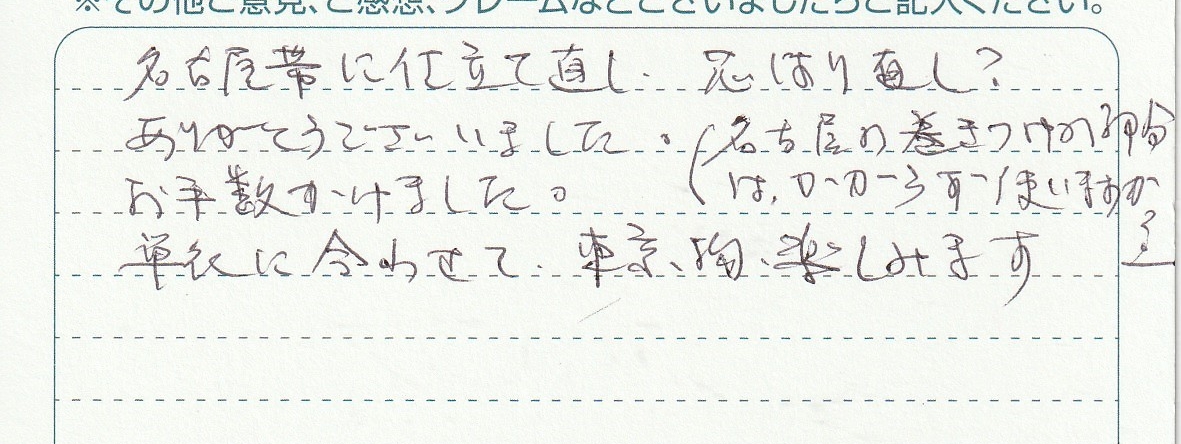 ※その他ご意見、ご感想、クレームなどございましたらご記入ください。
名古屋帯に仕立て直し、芯はり直し?
ありがとうございました。
(名古屋の巻きつけの部分
は、かからず使いますか
お手数かけました。
単衣に合わせて、東京、楽しみます